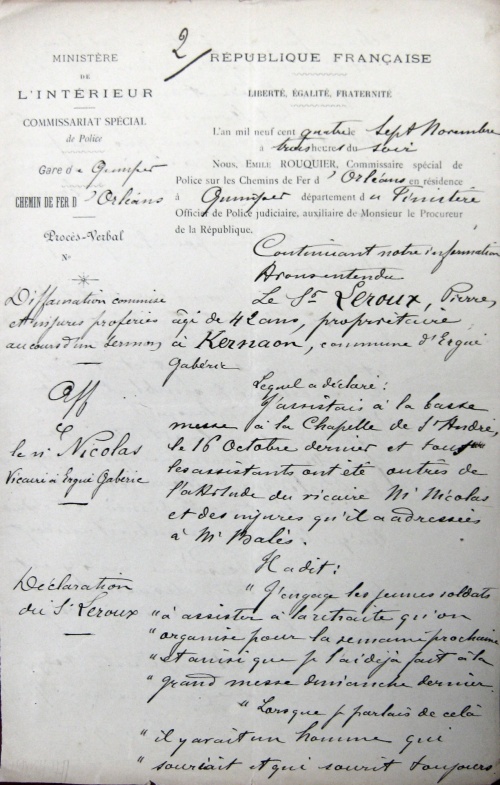 2
MINISTÈRE
DE
L'INTÉRIEUR
COMMISSARIAT SPÉCIAL
de Police
Gare de Quimper
CHEMIN DE FER D'Orléans
Procès-Verbal
N°
Diffamation commise
et injures proférées
au cours d'un sermon
Aff
le né Nicolas
Vicaire à Ergué Gabéric
Déclaration
du Sr Leroux
RÉPUBLIQUE FRANÇAISE
LIBERTÉ, ÉGALITÉ, FRATERNITÉ
L'an mil neuf cent quatre le Sept Novembre
à trois heures du soir
Nous, EMILE ROUQUIER, Commissaire spécial de
Police sur les Chemins de Fer d'Orléans en résidence
à Quimper département du Finistère
Officier de Police judiciaire, auxiliaire de Monsieur le Procureur
de la République.
Continuant notre information
Avons entendu
Le Sr Leroux, Pierre,
âgé de 42 ans, propriétaire
à Kernaon, commune d'Ergué
Gabéric
Lequel a déclaré :
J'assistais à la basse
messe à la Chapelle de St André,
le 16 Octobre dernier et tous
les assistants ont été outrés de
l'attitude du vicaire Mr Nicolas
et des injures qu'il a adressées
à Mr Balès.
Il a dit :
" J'engage les jeunes soldats
" à assister à la retraite qu'on
" organise pour la semaine prochaine
" et ainsi que je l'ai déjà fait à la
" grand messe dimanche dernier.
" Lorsque je parlais de celà
" il y avait un homme qui
" souriait et qui sourit toujours